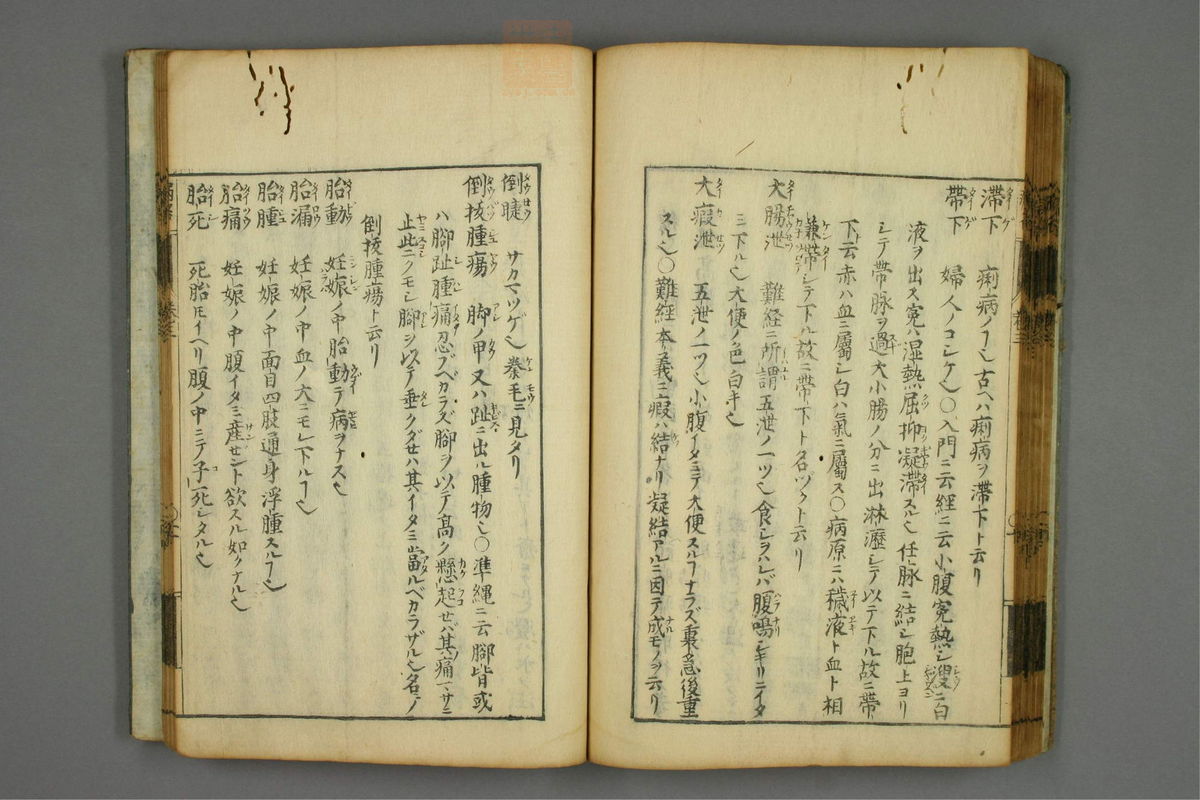 滞下 痢病ノヿ也古ヘハ痢病ヲ滞下ト云リ
帯下 婦人ノコシケ也〇入門ニ云経ニ云小腹寃熱シ溲ニ白
液ヲ出ス寃ハ湿熱屈抑凝滞スル也任脉ニ結シ胞上ヨリ
シテ帯脉ヲ過大小腸ノ分ニ出淋瀝シテ以テ下ル故ニ帯
下ト云赤ハ血ニ屬シ白ハ氣ニ屬ス〇病原ニハ穢液ト血ト相
兼帯シテ下ル故ニ帯下ト名ヅクト云リ
大腸泄 難経ニ所謂五泄ノ一ツ也食シヲハレバ腹鳴シキリニイタ
ミ下ル也大便ノ色白キ也
大瘕泄 五泄ノ一ツ也小腹イタミテ大便スルヿナラズ裏急後重
スル也〇難経本義ニ瘕ハ結ナリ凝結アルニ因テ成モノヲ云リ
倒睫 サカマツゲ也拳毛ニ見タリ
倒抜腫瘍 脚ノ甲又ハ趾ニ出ル腫物也〇準縄ニ云脚背或
ハ脚趾腫痛忍ブベカラズ脚ヲ以テ高ク懸起セバ其痛ヤサニ
止此ニクモシ脚ヲ以テ垂クダセハ其イタミ當ルベカラザル也名ノ
倒抜腫瘍ト云リ
胎動 妊娠ノ中胎動テ病ヲナス也
胎漏 妊娠ノ中血ノ大ニモレ下ルヿ也
胎腫 妊娠ノ中面目四肢通身浮腫スルヿ也
胎痛 妊娠ノ中腹イタミ産セント欲スル如クナル也
胎死 死胎トモイヘリ腹ノ中ニテ子死シタル也